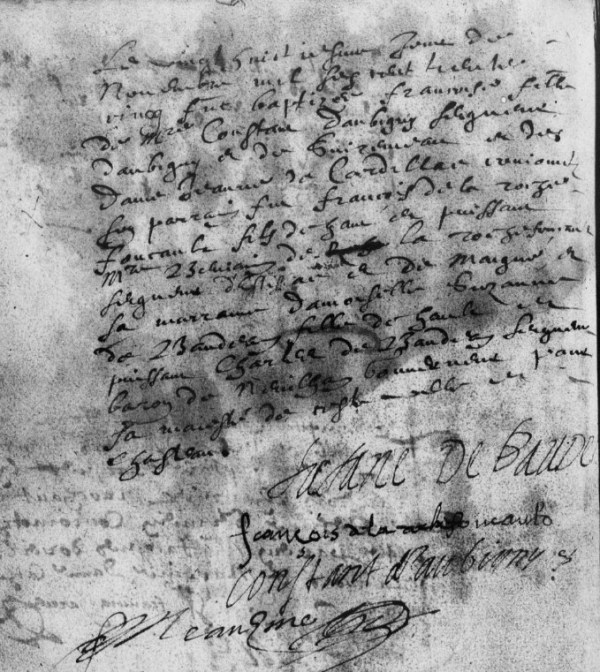 Le vingt huictiesme Jour de
Novembre mil six cent trente
cinq fut baptisée françoise fille
de Mre Constant daubigny seigneur
daubigny et de Surimeau et de
dame Jeanne de Cardillac conjoinct
son parrain fut françois de la roche
foucault fils de haut et puissant
Mre Benjamin de la rochefoucaut
seigneur destissac et de Maigné et
sa marraine damoiselle Suzanne
de Baudean fille de haut et
puissant Charles de Baudean seigneur
baron de Neuillan gouverneur pour
sa majesté de ceste ville et
chasteau
Susane De Baude
françois de la rochefoucault
Constant d'Aubigny